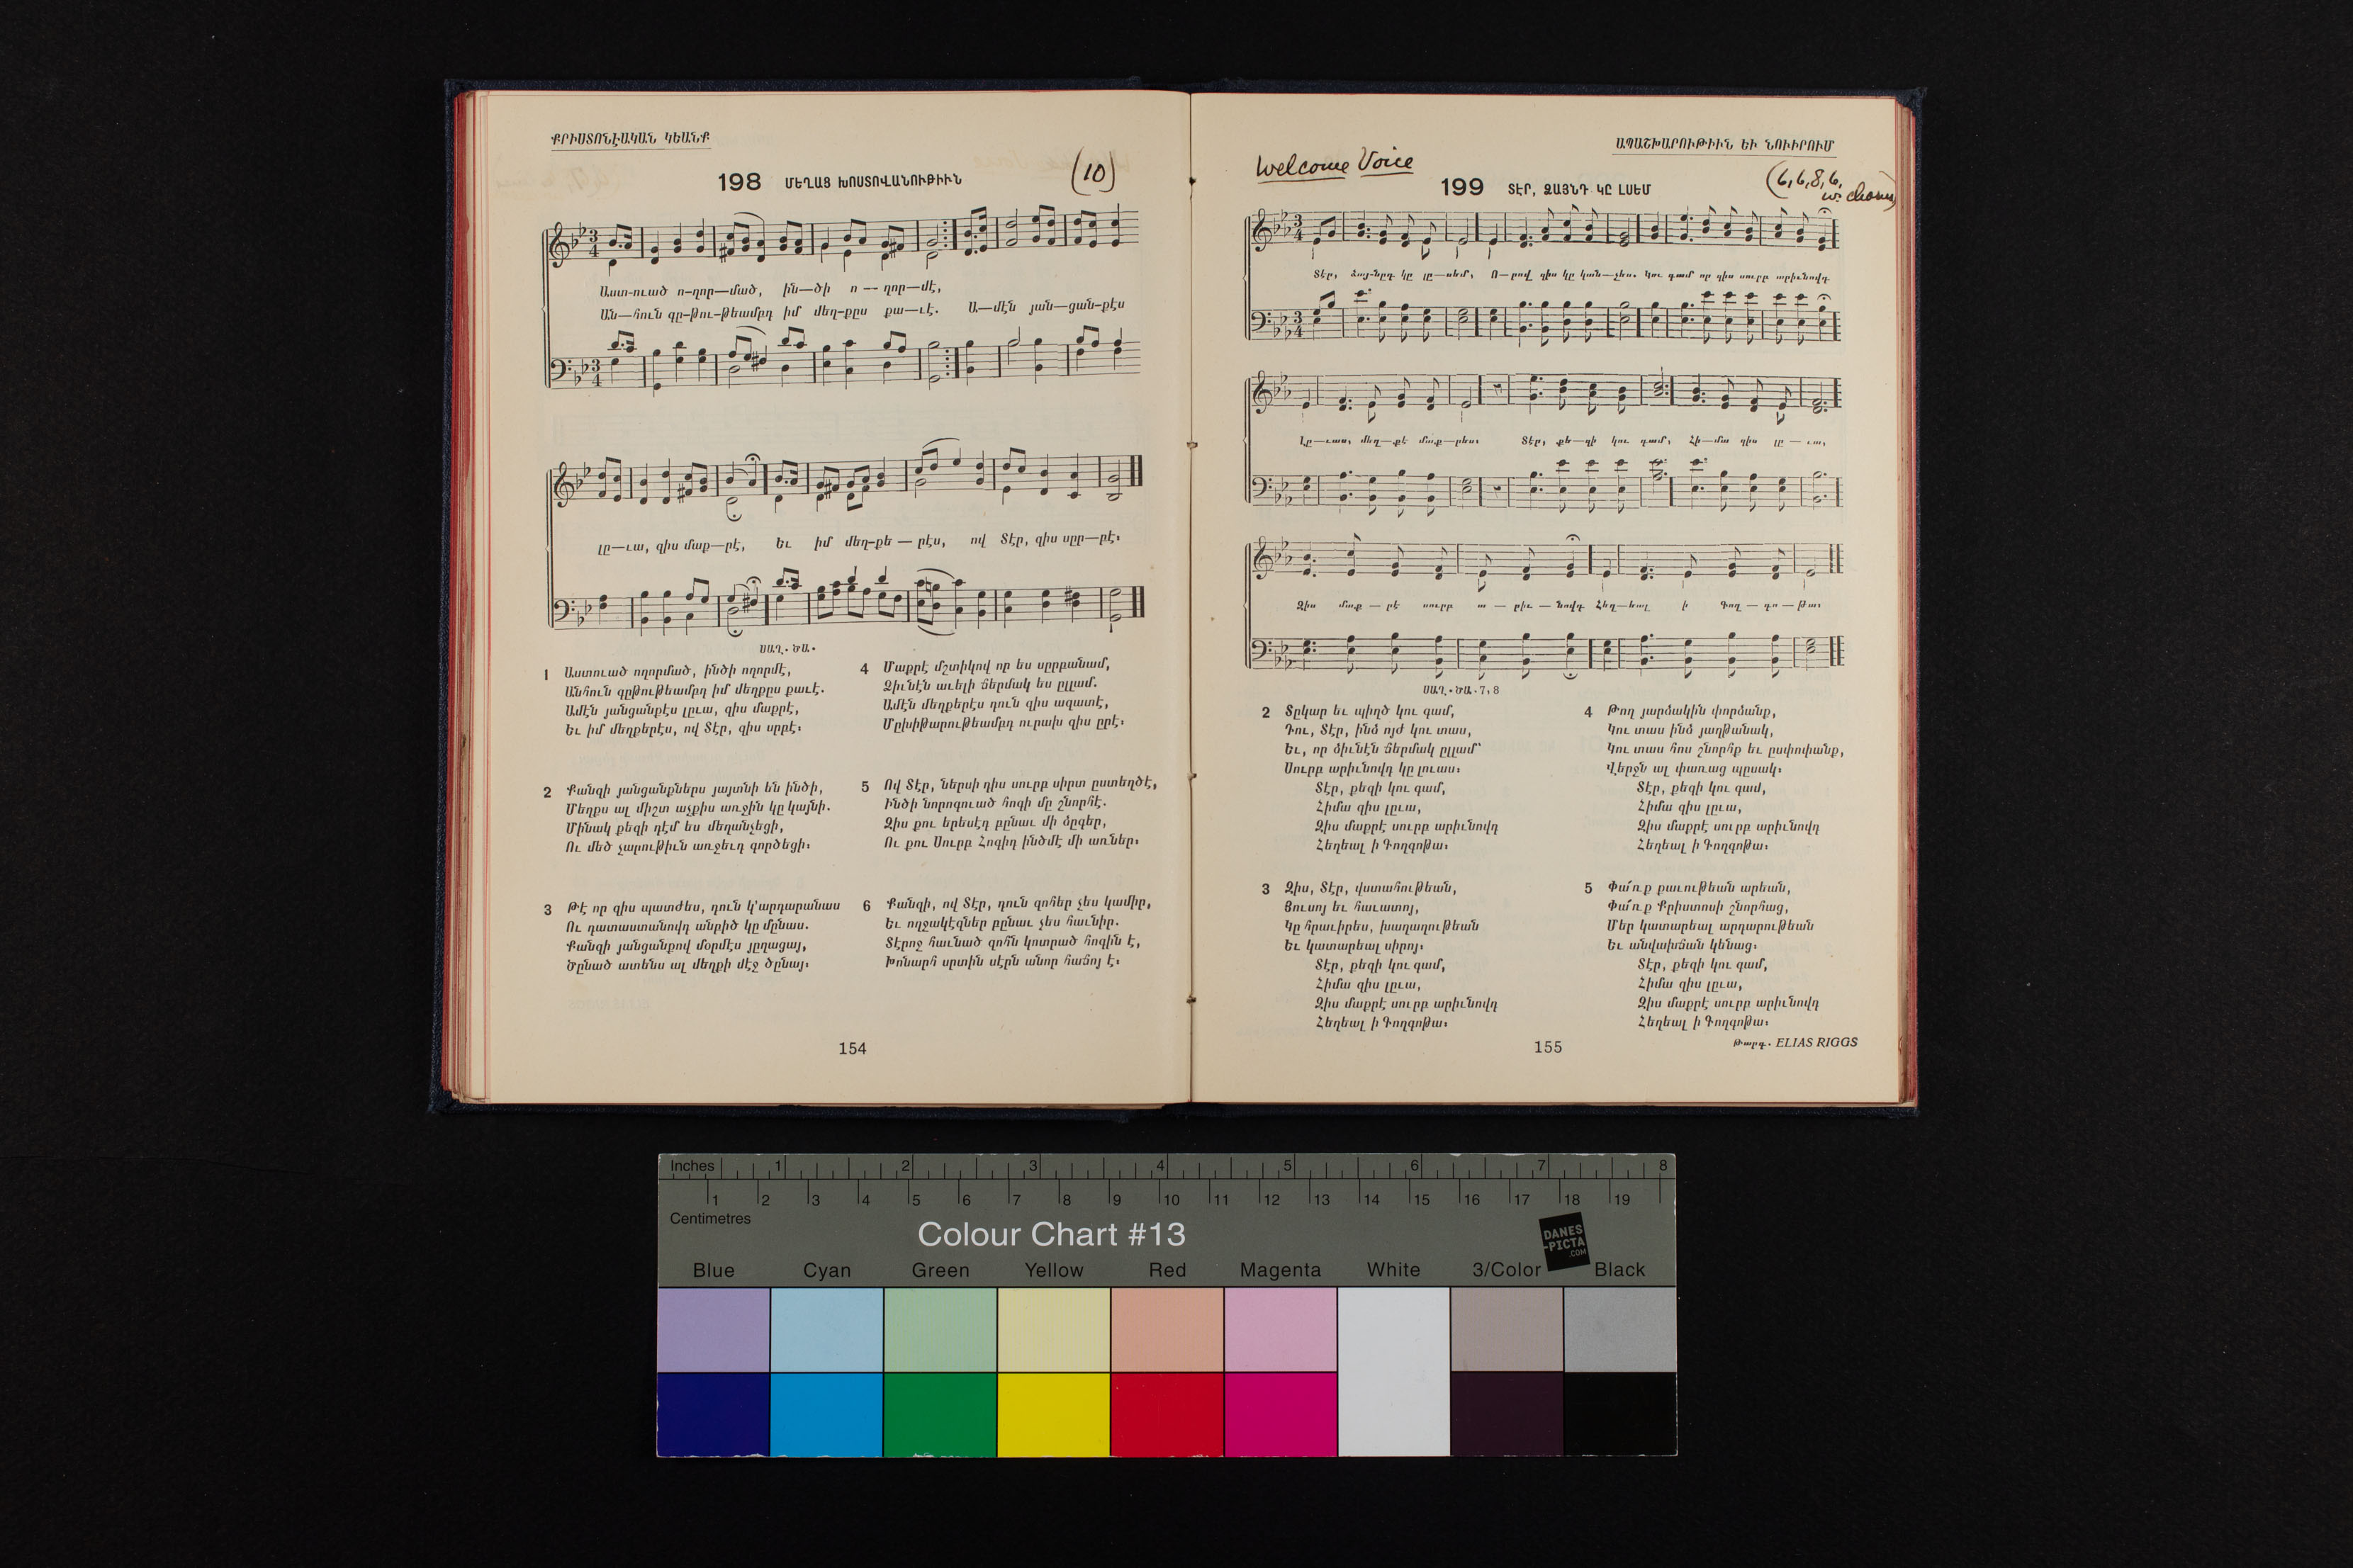 ՔՐԻՍՏՈՆԷԱԿԱՆ ԿԵԱՆՔ
198 ՄԵՂԱՑ ԽՈՍՏՈՎԱՆՈՒԹԻՒՆ
(10)
Աստ-ուած ո-ղոր—մած, ին—ծի ո — ղոր—մէ,
Ան—հուն գը-թու-թեամբդ իմ մեղ-քըս քա—ւէ. Ա—մէն յան—ցան-քէս
լը—ւա, զիս մաք—րէ, Եւ իմ մեղ-քե — րէս, ով Տէր, զիս սըր—բէ։
ՍԱՂ. ԾԱ.
1 Աստուած ողորմած, ինծի ողորմէ,
Անհուն գըթութեամբդ իմ մեղքըս քաւէ.
Ամէն յանցանքէս լըւա, զիս մաքրէ,
Եւ իմ մեղքերէս, ով Տէր, զիս սրբէ։
2 Քանզի յանցանքներս յայտնի են ինծի,
Մեղքս ալ միշտ աչքիս առջին կը կայնի.
Մինակ քեզի դէմ ես մեղանչեցի,
Ու մեծ չարութիւն առջեւդ գործեցի։
3 Թէ որ զիս պատժես, դուն կ՚արդարանաս
Ու դատաստանովդ անբիծ կը մընաս.
Քանզի յանցանքով մօրմէս յըղացայ,
Ծընած ատենս ալ մեղքի մէջ ծընայ։
4 Մաքրէ մշտիկով որ ես սըրբանամ,
Ձիւնէն աւելի ճերմակ ես ըլլամ.
Ամէն մեղքերէս դուն զիս ազատէ,
Մըխիթարութեամբդ ուրախ զիս ըրէ։
5 Ով Տէր, ներսի դիս սուրբ սիրտ ըստեղծէ,
Ինծի նորոգուած հոգի մը շնորհէ.
Զիս քու երեսէդ բընաւ մի ձըգեր,
Ու քու Սուրբ Հոգիդ ինծմէ մի առներ։
6 Քանզի, ով Տէր, դուն զոհեր չես կամիր,
Եւ ողջակէզներ բընաւ չես հաւնիր.
Տէրոջ հաւնած զոհն կոտրած հոգին է,
Խոնարհ սրտին սէրն անոր հաճոյ է։
154
ԱՊԱՇԽԱՐՈՒԹԻՒՆ ԵՒ ՆՈՒԻՐՈՒՄ
Welcome Voice
199 ՏԷՐ, ՁԱՅՆԴ ԿԸ ԼՍԵՄ
(6,6,8,6,
w. chorus)
Տէր, ձայ-նըդ կը լը—սեմ, Ո—րով զիս կը կան—չես. Կու գամ որ զիս սուրբ արիւնովդ
Լը—ւաս, մեղ—քէ մաք—րես։ Տէր, քե—զի կու գամ, Հի—մա զիս լը — ւա,
Զիս մաք — րէ սուրբ ա — րիւ — նովդ Հեղ—եալ ի Գող — գո — թա։
ՍԱՂ. ԾԱ. 7, 8
2 Տըկար եւ պիղծ կու գամ,
Դու, Տէր, ինձ ոյժ կու տաս,
Եւ, որ ձիւնէն ճերմակ ըլլամ՝
Սուրբ արիւնովդ կը լուաս։
Տէր, քեզի կու գամ,
Հիմա զիս լըւա,
Զիս մաքրէ սուրբ արիւնովդ
Հեղեալ ի Գողգոթա։
3 Զիս, Տէր, վստահութեան,
Յուսոյ եւ հաւատոյ,
Կը հրաւիրես, խաղաղութեան
Եւ կատարեալ սիրոյ։
Տէր, քեզի կու գամ,
Հիմա զիս լըւա,
Զիս մաքրէ սուրբ արիւնովդ
Հեղեալ ի Գողգոթա։
4 Թող յարձակին փորձանք,
Կու տաս ինձ յաղթանակ,
Կու տաս հոս շնորհք եւ ըսփոփանք,
Վերջն ալ փառաց պըսակ։
Տէր, քեզի կու գամ,
Հիմա զիս լըւա,
Զիս մաքրէ սուրբ արիւնովդ
Հեղեալ ի Գողգոթա։
5 Փա՛ռք քաւութեան արեան,
Փա՛ռք Քրիստոսի շնորհաց,
Մեր կատարեալ արդարութեան
Եւ անվախճան կենաց։
Տէր, քեզի կու գամ,
Հիմա զիս լըւա,
Զիս մաքրէ սուրբ արիւնովդ
Հեղեալ ի Գողգոթա։
155
Թարգ. ELIAS RIGGS
Inches 1 2 3 4 5 6 7 8
1 2 3 4 5 6 7 8 9 10 11 12 13 14 15 16 17 18 19
Centimetres
Colour Chart #13
DANES
-PICTA
.COM
Blue Cyan Green Yellow Red Magenta White 3/Color Black